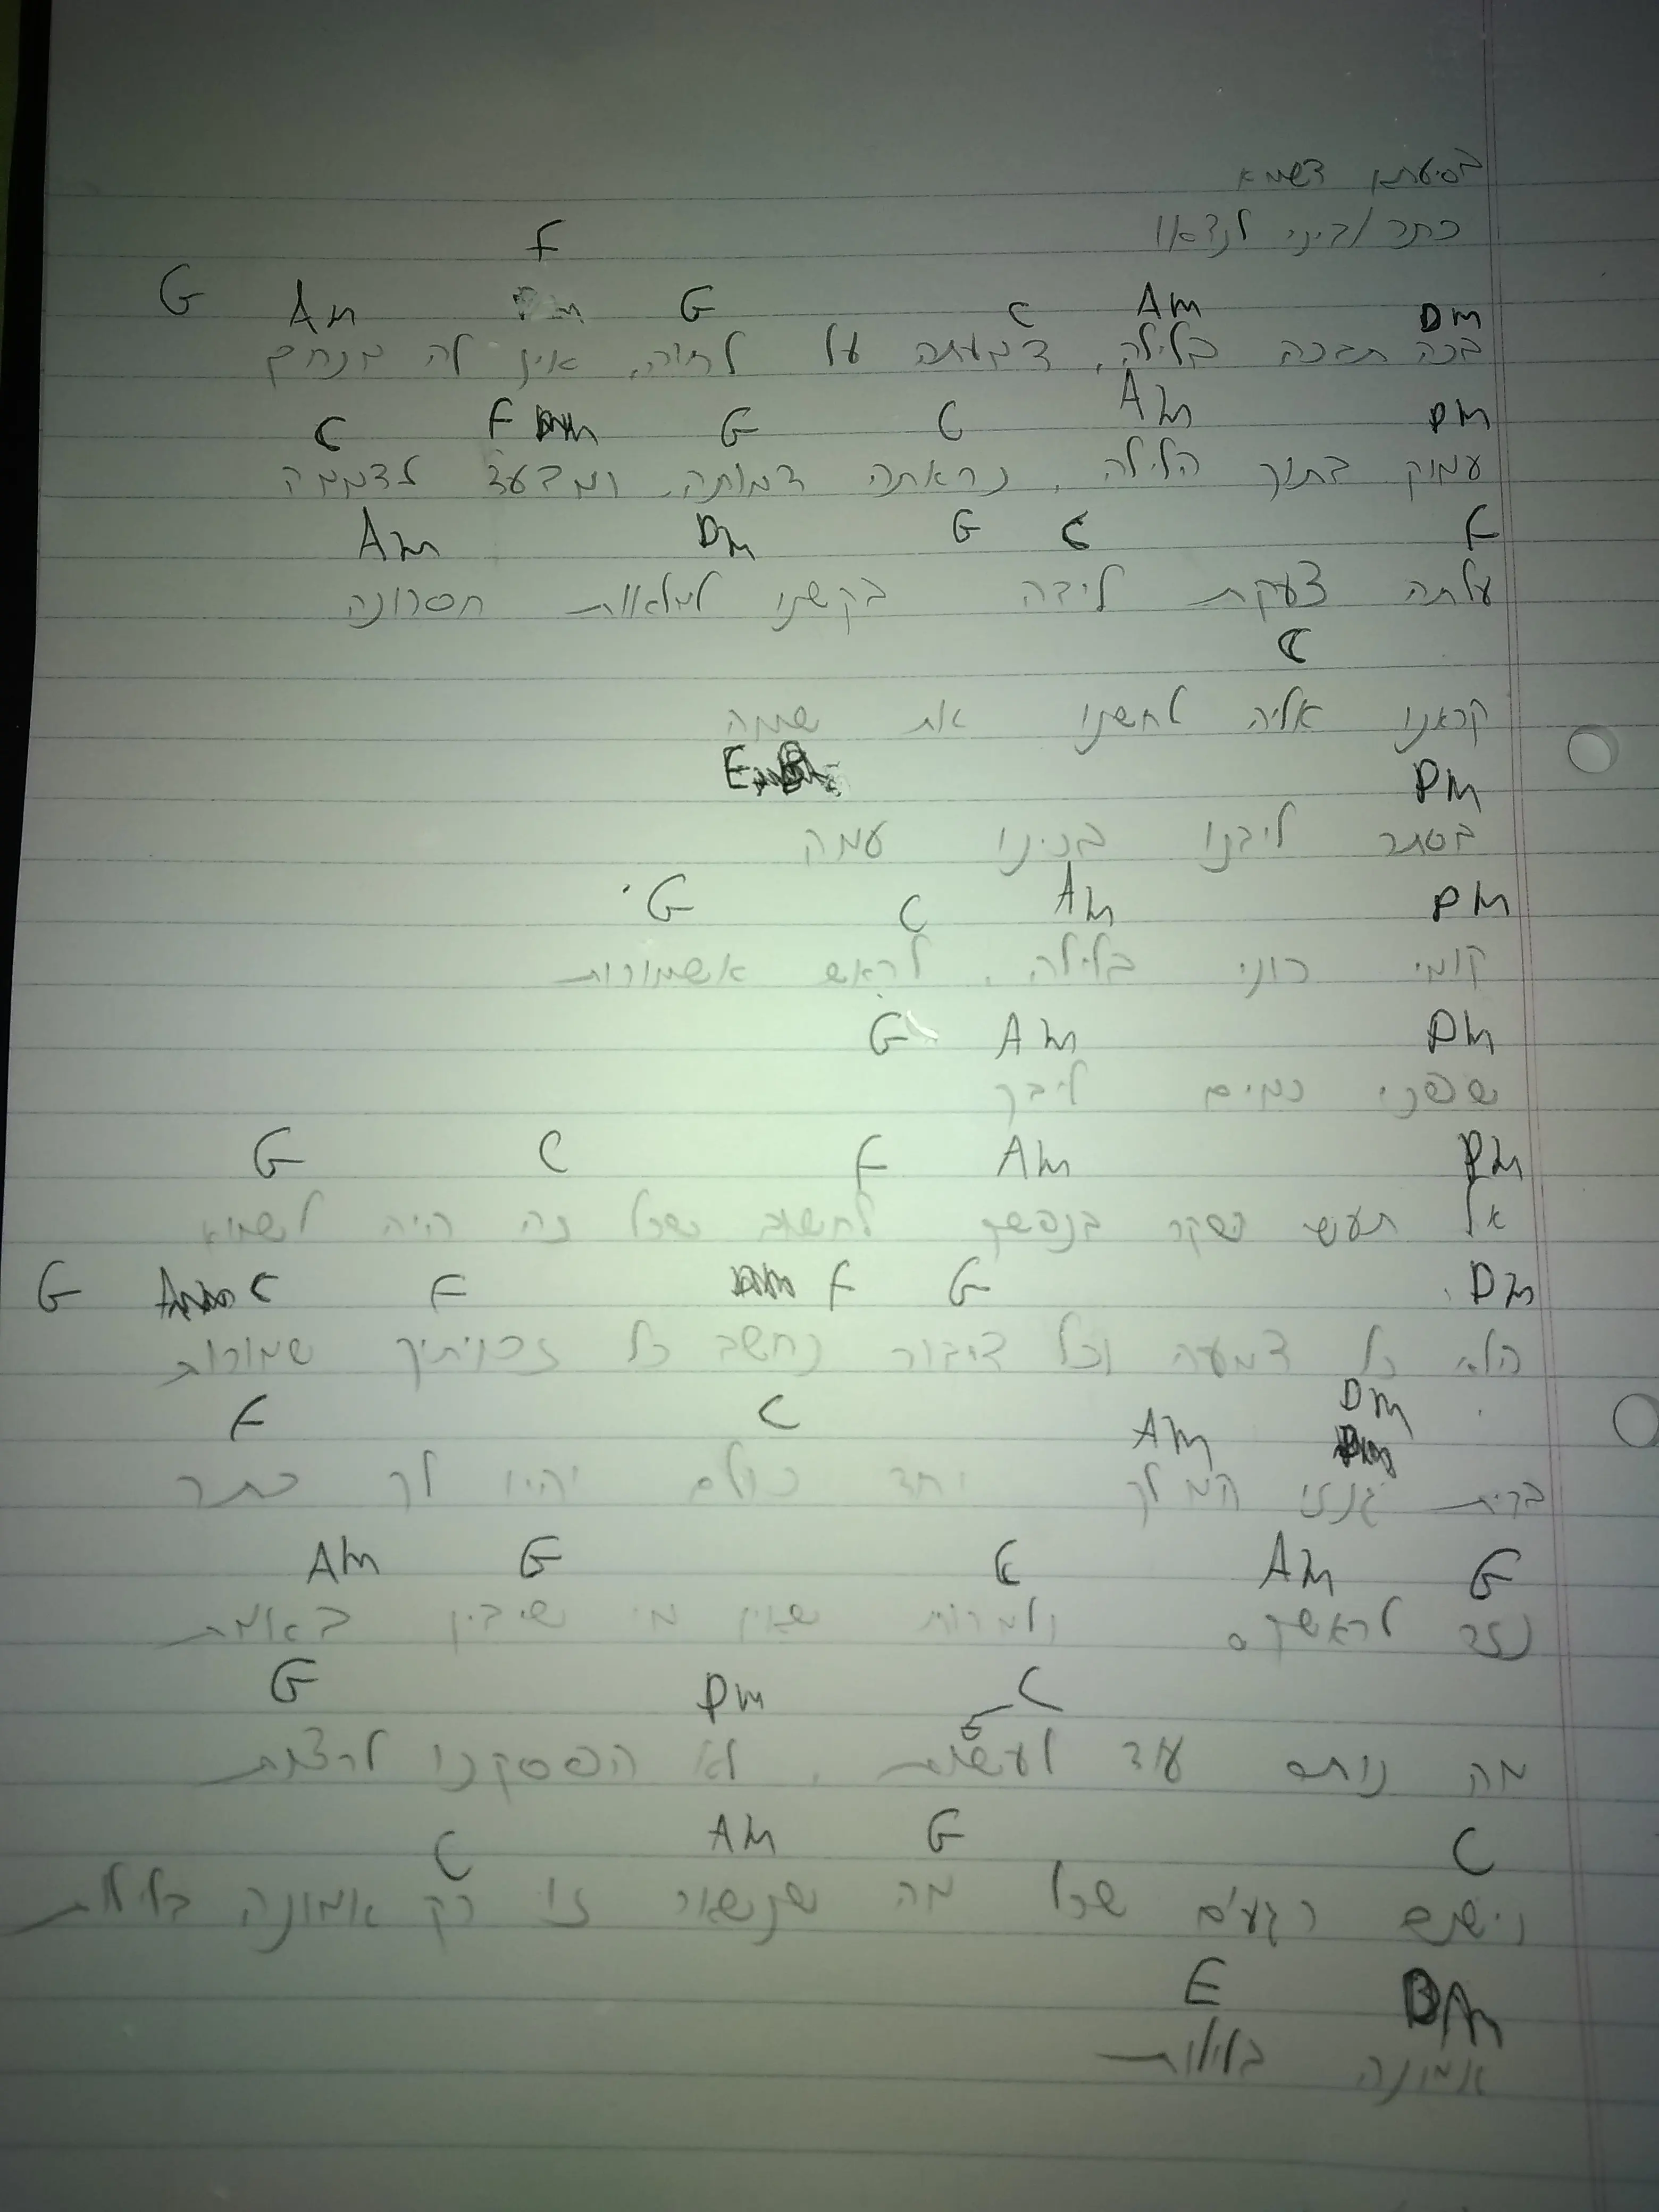 בסיעתא דשמיא
כתר / ביני לנדאו
F
Dm Am C G Am G
בכה תבכה בלילה, דמעתה על לחיה, אין לה מנחם
Dm Am C G F C
עמוק בתוך הלילה, נראתה דמותה, ומבעד לדממה
F C G Dm Am
עלתה צעקת לידה בקשנו למלאות חסרונה
C
קראנו אליה לחשנו את שמה
Dm E
בסתר ליבנו בכינו עמה
Dm Am C G
קומי רוני בלילה, לראש אשמורות
Dm Am G
שפכי כמים ליבך
Dm Am F C G
אל תעשי שקר בנפשך לחשוב שכל זה היה לשווא
Dm G F F C G
הלא כל דמעה וכל דיבור נחשב כל זכויתיך שמורות
Dm Am C F
בבית גנזי המלך יחד כולם יהיו לך כתר
G Am C G Am
נזר לראשך. ולמרות שאין מי שיבין באמת
C Dm G
מה נותר עוד לעשות, לא הפסקנו לרצות
C G Am C
וישנם רגעים שכל מה שנשאר זו רק אמונה בלילות
Am E
אמונה בלילות